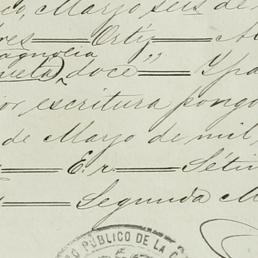 co, Marzo seis de
res — Ortiz — A
agnolia
ueta) doce " — Ypa
or escritura pongo
de Marzo de mil
— Er — Séti
— Segunda M
PUBLICO DE LA